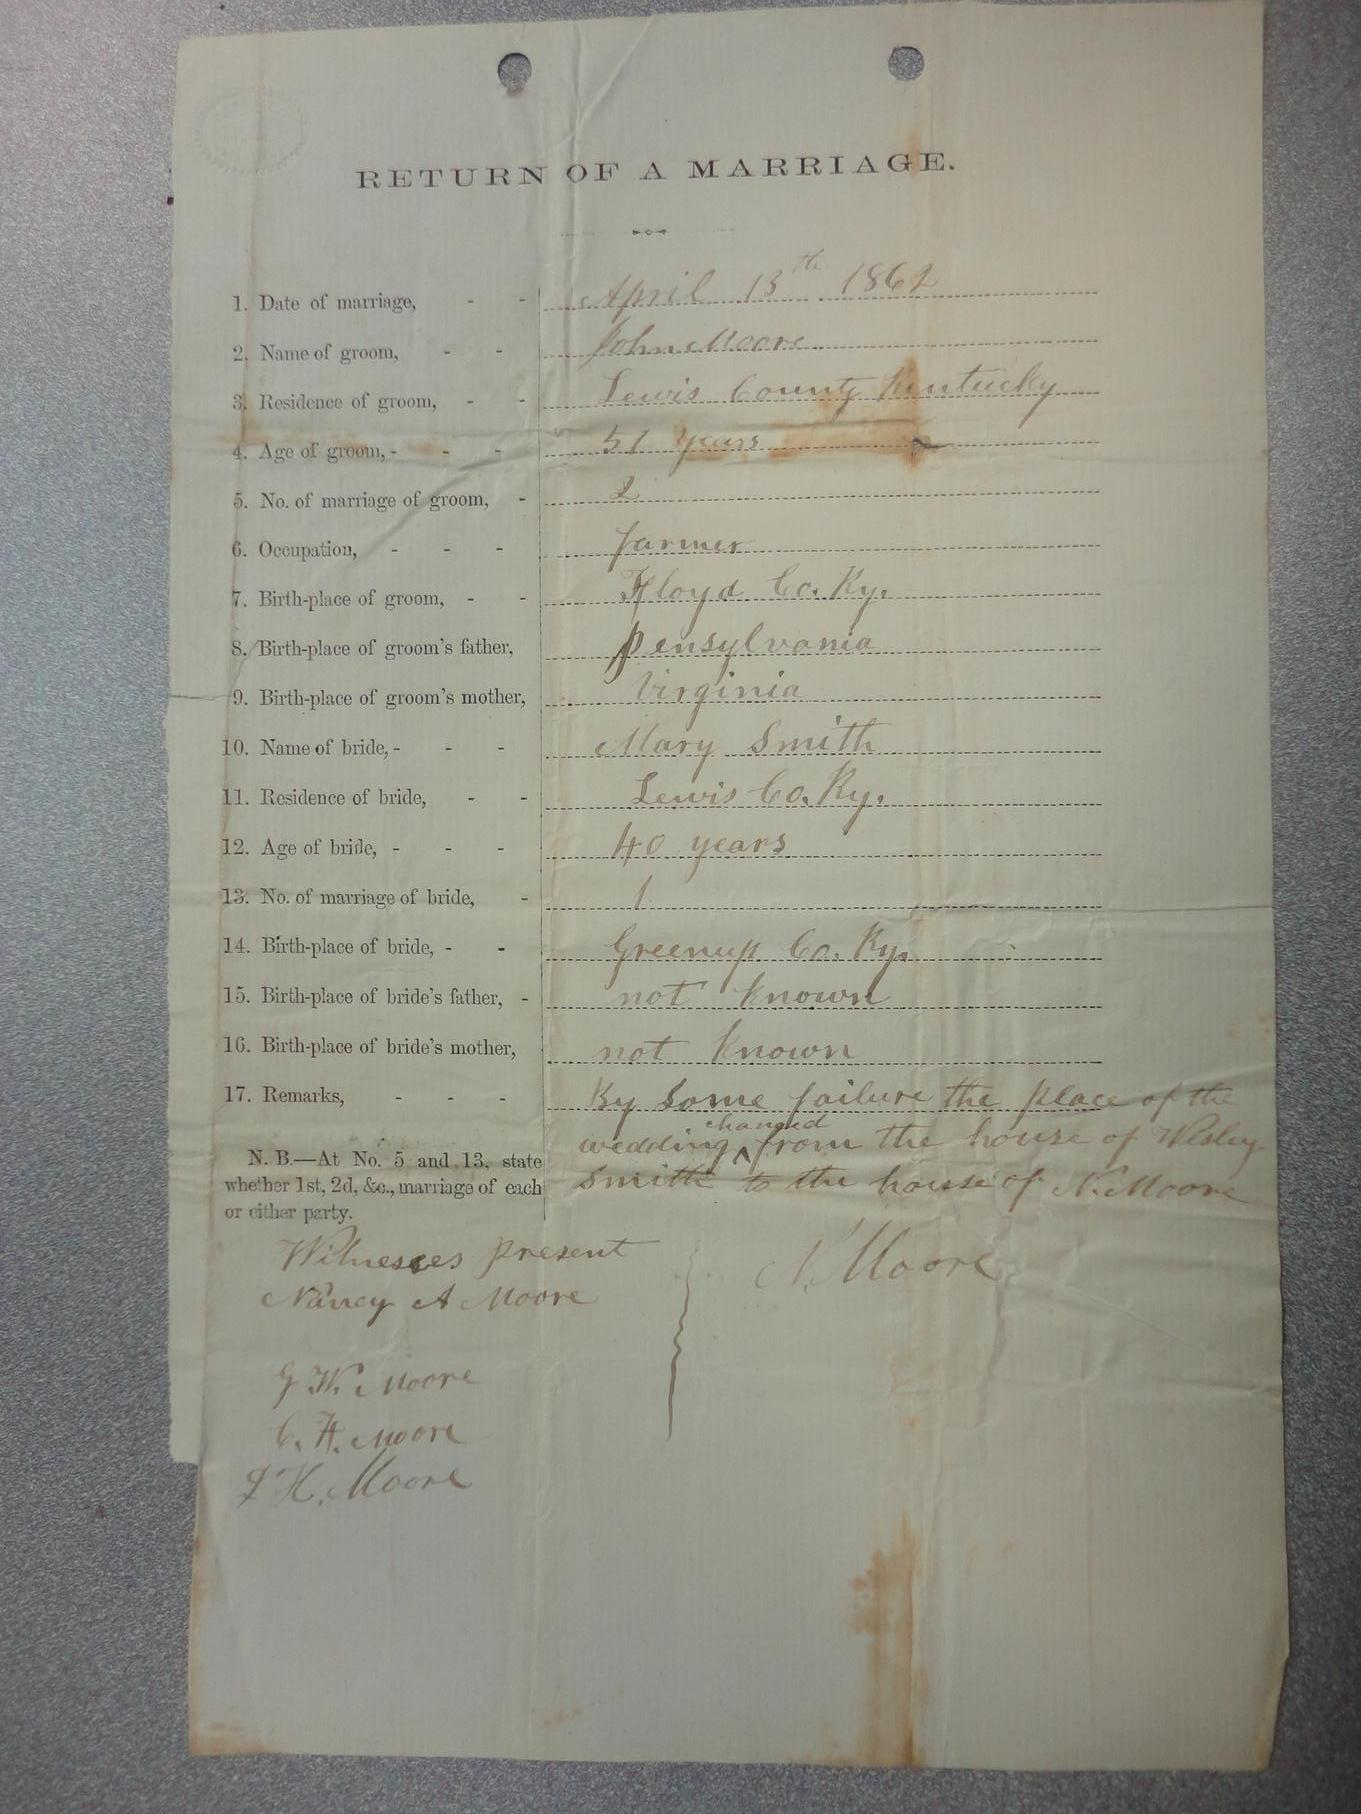 RETURN OF A MARRIAGE.
1. Date of marriage, - - April 13th 1862
2. Name of groom, - - John Moore
3. Residence of groom, - - Lewis County Kentucky
4. Age of groom, - - - 51 years
5. No. of marriage of groom, - 2
6. Occupation, - - - farmer
7. Birth-place of groom, - - Floyd Co. Ky.
8. Birth-place of groom's father, pensylvania
9. Birth-place of groom's mother, Virginia
10. Name of bride, - - - Mary Smith
11. Residence of bride, - - Lewis Co. Ky.
12. Age of bride, - - - 40 years
13. No. of marriage of bride, - 1
14. Birth-place of bride, - - Greenup Co. Ky.
15. Birth-place of bride's father, - not known
16. Birth-place of bride's mother, not known
17. Remarks, - - - By some failure the place of the
wedding changed from the house of Wesley
Smith to the house of N. Moore
N. B.—At No. 5 and 13, state
whether 1st, 2d, &c., marriage of each
or either party.
Witnesses present
Nancy A Moore
N. Moore
G W. Moore
C. H. Moore
L H. Moore